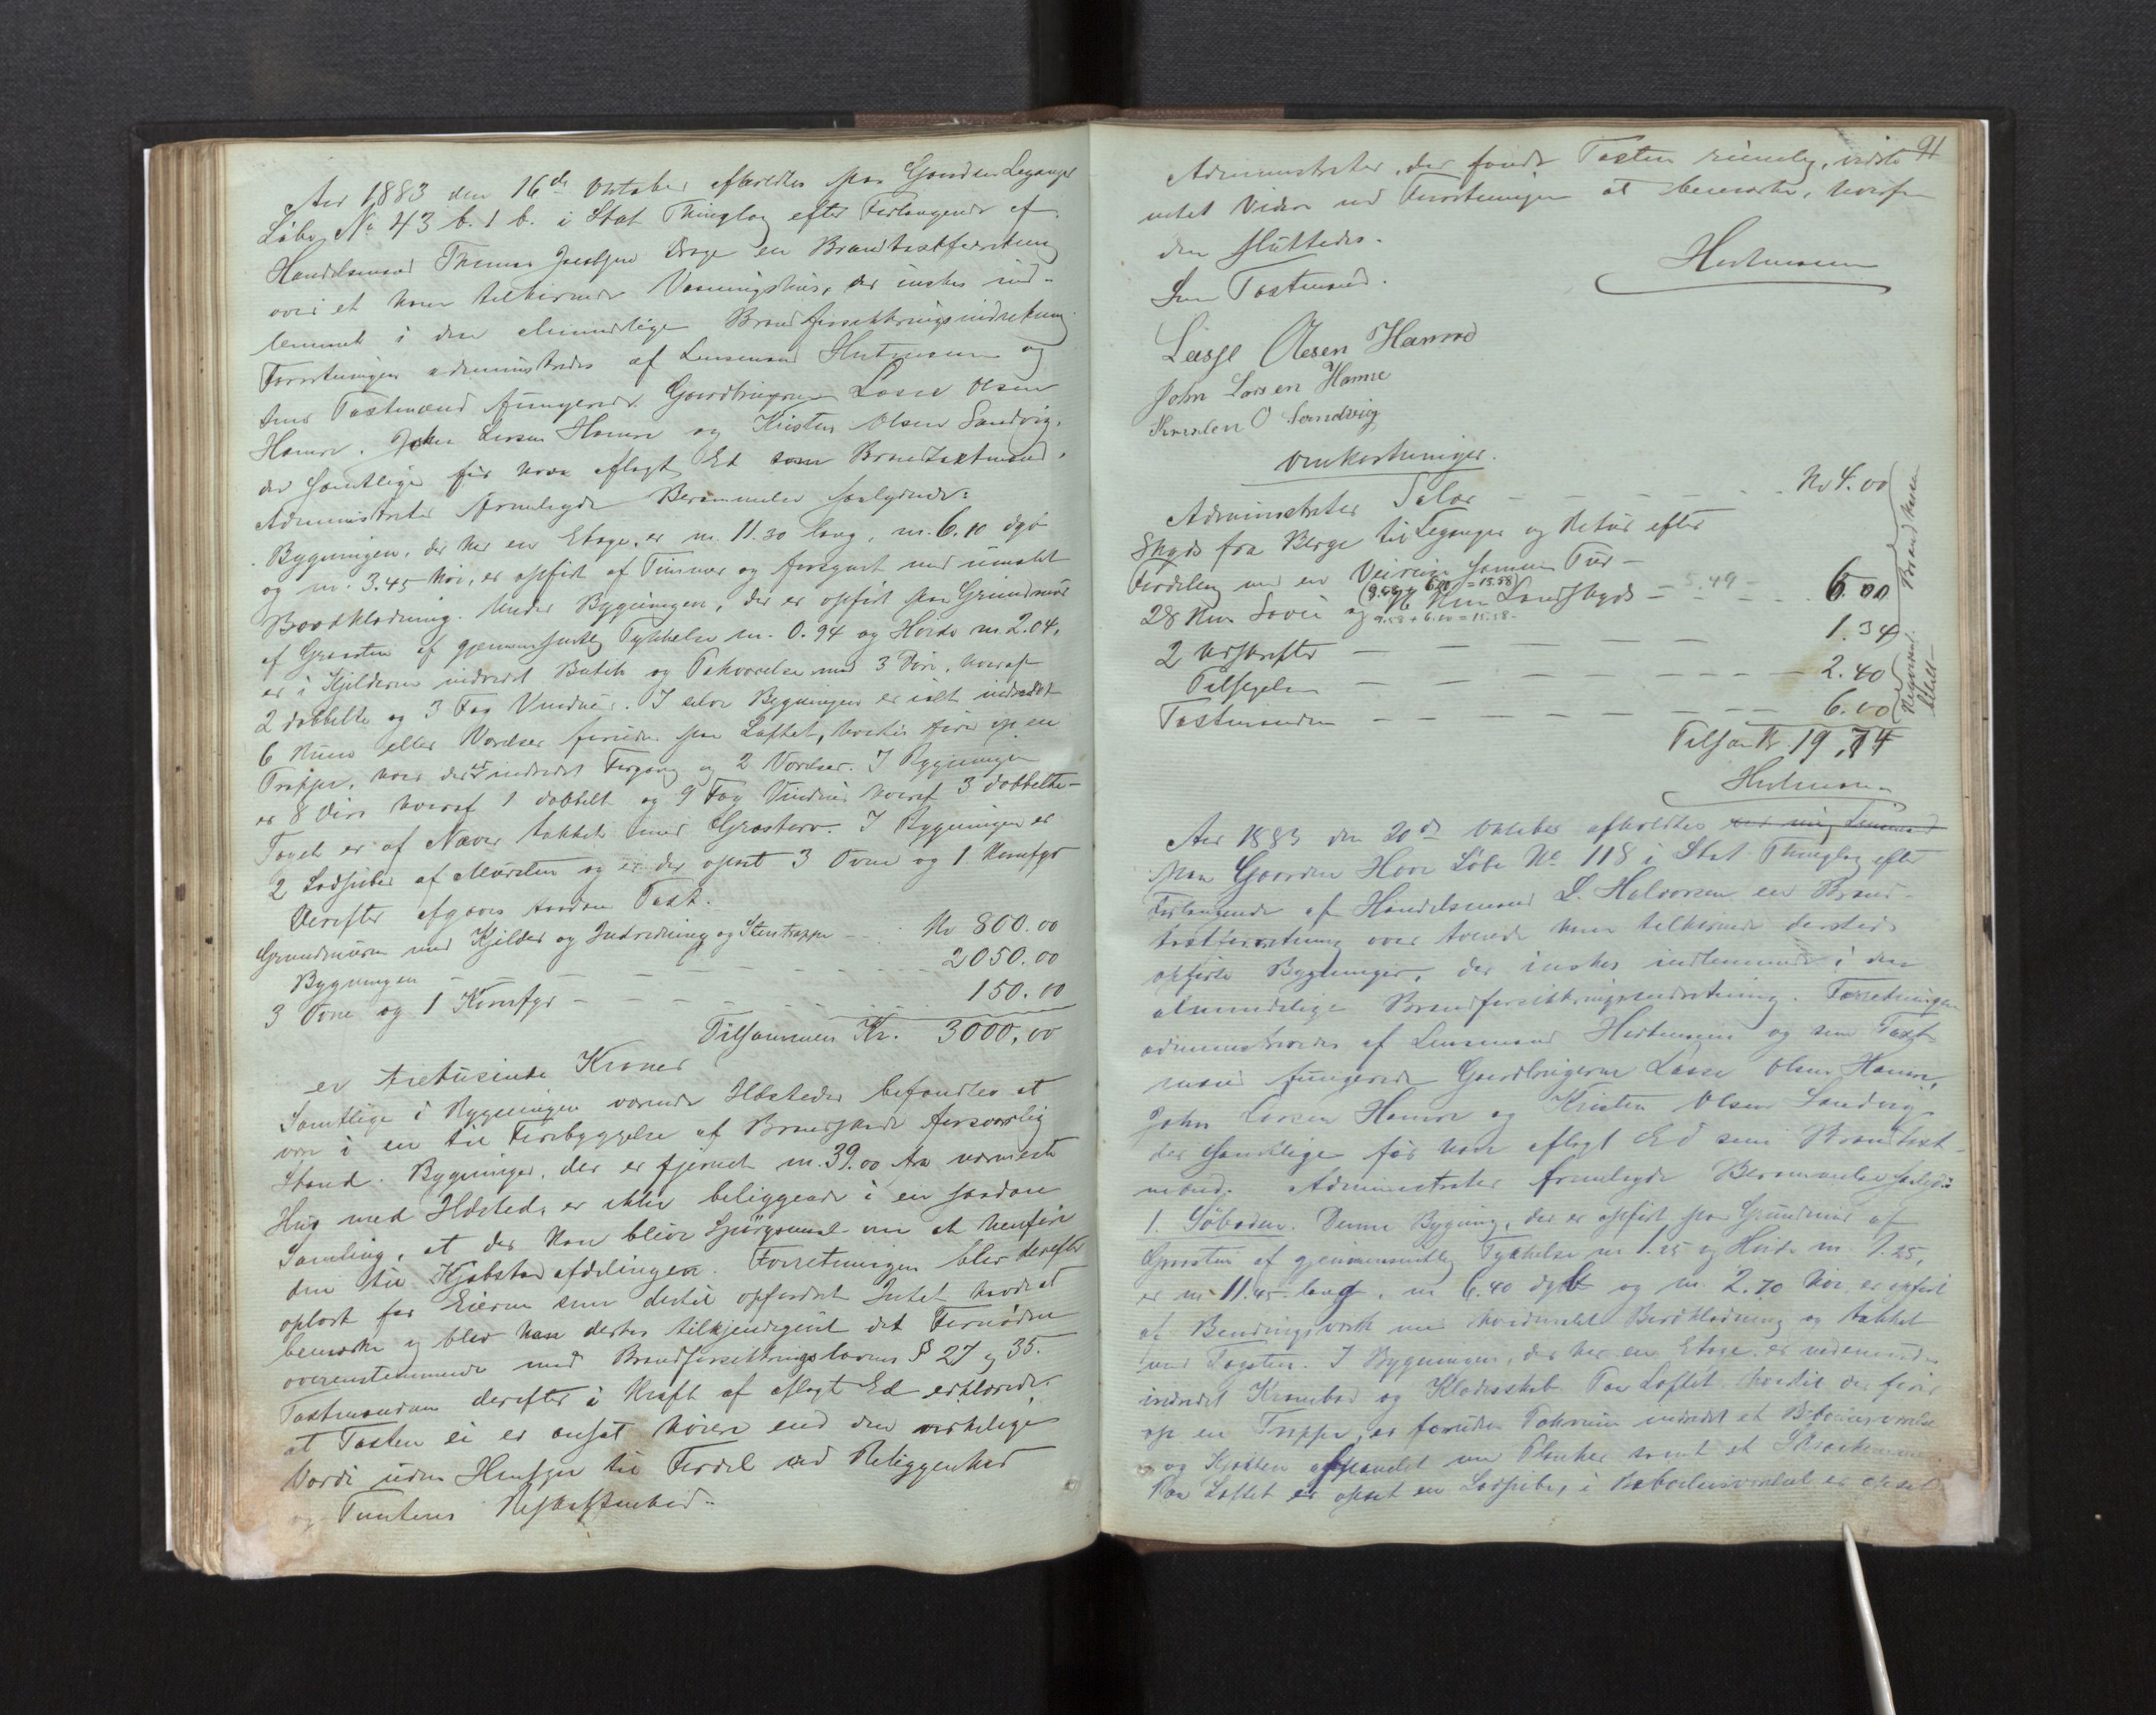 Aar 1883 den 16de Oktober afholdtes paa Gaarden Leganger
Løbe No 43 b. 1 b. i Stat Thinglag efter Forlangende af
Handelsmand Thomas Jacobsen Drage en Brandtaxtforretning
over et ham tilhørende Vaaningshus, der ønskes ind-
lemmet i den almindelige Brandforsikkringsindretning.
Forretningen administredes af Lensmand Hertmann og
som Taxtmænd fungerede Gaardbrugerne Lasse Olsen
Hamre, John Larsen Hamre og Kristen Olsen Sandvig,
der samtlige før have aflagt Ed som Brandtaxtmænd.
Administrator fremlagde Berammelse saalydende:
Bygningen, der har en Etage, er m. 11.30 lang, m. 6.10 dyb
og m. 3.45 høi, er opført af Tømmer og forsynet med umalet
Bordklædning. Under Bygningen, der er opført paa Grundmur
af Graasten af gjennemsnitlig Tykkelse m. 0.94 og Høide m 2.04,
er i Kjelderen indredet Butik og Bekvæmmelse med 3 Døre, hvoraf
2 dobbelte og 3 Fag Vinduer. I selve Bygningen er ialt indredet
6 Rum eller Værelser foruden paa Loftet, hvortil fører op en
Trappe, hvor der er indredet Forgang og 2 Værelser. I Bygningen
er 8 Døre hvoraf 1 dobbelt og 9 Fag Vinduer hvoraf 3 dobbelte -
Taget er af Næver takket med Græstorv. I Bygningen er
2 Ladpiber af Mursten og er der opsat 3 Ovne og 1 Komfyr
Derefter afgaves saadan Taxt.
Grundmuren med Kjelder og Indredning og Stentrappe - Kr 800.00
Bygningen - - - - - - - - 2050.00
3 Ovne og 1 Komfyr - - - - - - 150.00
Tilsammen Kr. 3000.00
er tretusinde Kroner
Samtlige i Bygningen værende Ildsteder befandtes at
være i en til Forebyggelse af Brandskade forsvarlig
Stand. Bygningen, der er fjernet m. 39.00 fra nærmeste
Hus med Ildsted, er ikke beliggende i en saadan
Samling, at der kan blive Spørgsmaal om at henføre
den til Kjøbstadafdelingen. Forretningen blev derefter
oplæst for Eieren som dertil opfordret Intet havde at
bemærke og blev ham derhos tilkjendegivet det Fornødne
overenstemmende med Brandforsikkringslovens § 27 og 35.
Taxtmændene derefter i Kraft af aflagt Ed erklærede
at Taxten ei er ansat høiere end den virkelige
Værdi uden Hensyn til Fordel ved Beliggenhed
og Tomtens Beskaffenhed.
91
Administrator, der fandt Taxten rimelig, vidste
intet Videre ved Forretningen at bemærke, hvorfor
den sluttedes.
Hertmann
Som Taxtmænd.
Lasse Olesen Hamre
John Larsen Hamre
Kristen O Sandvig
Omkostninger.
Administrator Salær - - - - - Kr 4.00
Skyds fra Berge til Leganger og Retur efter
Fordeling med en Veirein samme Tur -
(9.58 + 6.00 = 15.58)
28 Km Søvei og Km Landskyds - 5.49 - 6.00
9.58 + 6.00 = 15.58
2 Udskrifter - - - - 1.34
Tilsigelse - - - - - - 2.40
Taxtmændene - - - - - - 6.00
Tilsam Kr. 19,74
Hertmann
Aar 1883 den 20de Oktober afholdtes ved mig Lensmand
paa Gaarden Hove Løbe No 118 i Stat Thinglag efter
Forlangende af Handelsmand L. Halvorsen en Brand-
taxtforretning over tvende ham tilhørende dersteds
opførte Bygninger, der ønskes indlemmede i den
almindelige Brandforsikkringsindretning. Forretningen
administreredes af Lensmand Hertmann og som Taxt
mænd fungerede Gaardbrugerne Lasse Olsen Hamre,
John Larsen Hamre og Kristen Olsen Sandvig
der samtlige før have aflagt Ed som Brandtaxt-
mænd. Administrator fremlagde Berammelse saalyd:
1. Søboden. Denne Bygning, der er opført paa Grundmur af
Graasten af gjennemsnitlig Tykkelse m 1.25 og Høide m. 1.25,
er m. 11.45 lang, m 6.40 dyb og m. 2.70 høi, er opført
af Bindingsværk med hvidmalet Bordklædning og takket
med Tagsten. I Bygningen, der har en Etage er nedenunder
indredet Krambod og Klædeskab. Paa Loftet, hvortil der fører
op en Trappe, er foruden indredet et Beboelsesværelse
og Kjøkken af Planker samt et
Paa Loftet er opsat en Ladpibe, i Beboelsesværelset er opsat